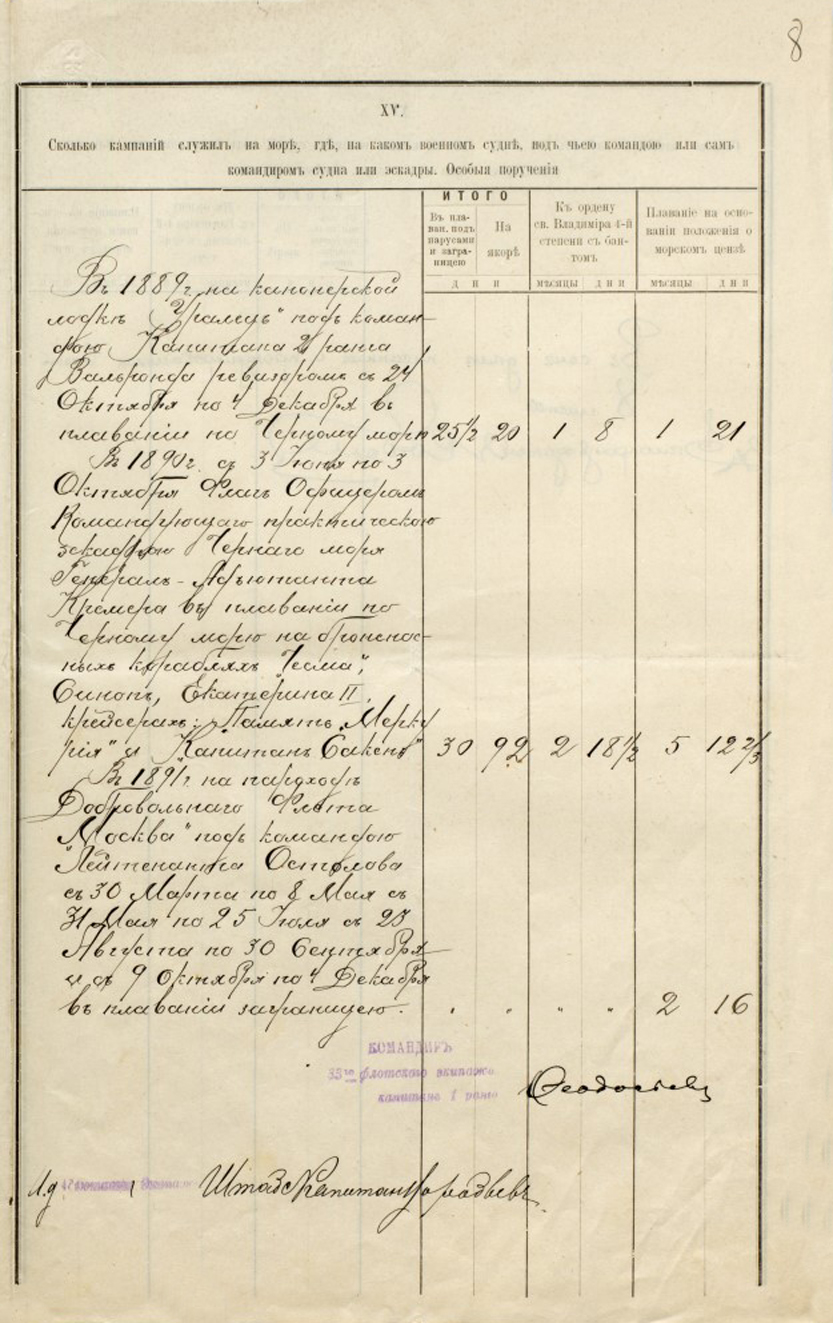 8
XV.
Сколько кампаній служилъ на морѣ, гдѣ, на какомъ военномъ суднѣ, подъ чьею командою или самъ
командиромъ судна или эскадры. Особыя порученія
ИТОГО
Въ пла-
ван. подъ
парусами
и загра-
ницею
На
якорѣ
Къ ордену
св. Владиміра 4-й
степени съ бан-
томъ
Плаваніе на осно-
ваніи положенія о
морскомъ цензѣ
Д н и
мѣсяцы д н и
мѣсяцы д н и
Въ 1889 г. на канонерской
лодкѣ „Уралецъ“ подъ коман-
дою Капитана 2 ранга
Вальронда ревизоромъ съ 24
Октября по 4 Декабря въ
плаваніи по Черному морю 25½ 20 1 8 1 21
Въ 1890 г. съ 3 Іюня по 3
Октября Флагъ Офицеромъ
Командующаго практическою
эскадрою Чернаго моря
Генералъ-Адъютанта
Кремера въ плаваніи по
Черному морю на броненос-
ныхъ корабляхъ „Чесма“,
Синопъ, Екатерина II,
крейсерахъ: „Память Мерку
рія“ и „Капитанъ Сакенъ“ 30 92 2 18½ 5 12 2/3
Въ 1891 г. на пароходѣ
Добровольнаго Флота
„Москва“ подъ командою
Лейтенанта Остолова
съ 30 Марта по 8 Мая съ
31 Мая по 25 Іюля съ 23
Августа по 30 Сентября
и съ 9 Октября по 4 Декабря
въ плаваніи заграницею. „ „ „ „ 2 16
КОМАНДИРЪ
33го флотскаго экипажа
капитанъ 1 ранга
Ѳеодосьевъ
И.д.
Штабсъ Капитанъ